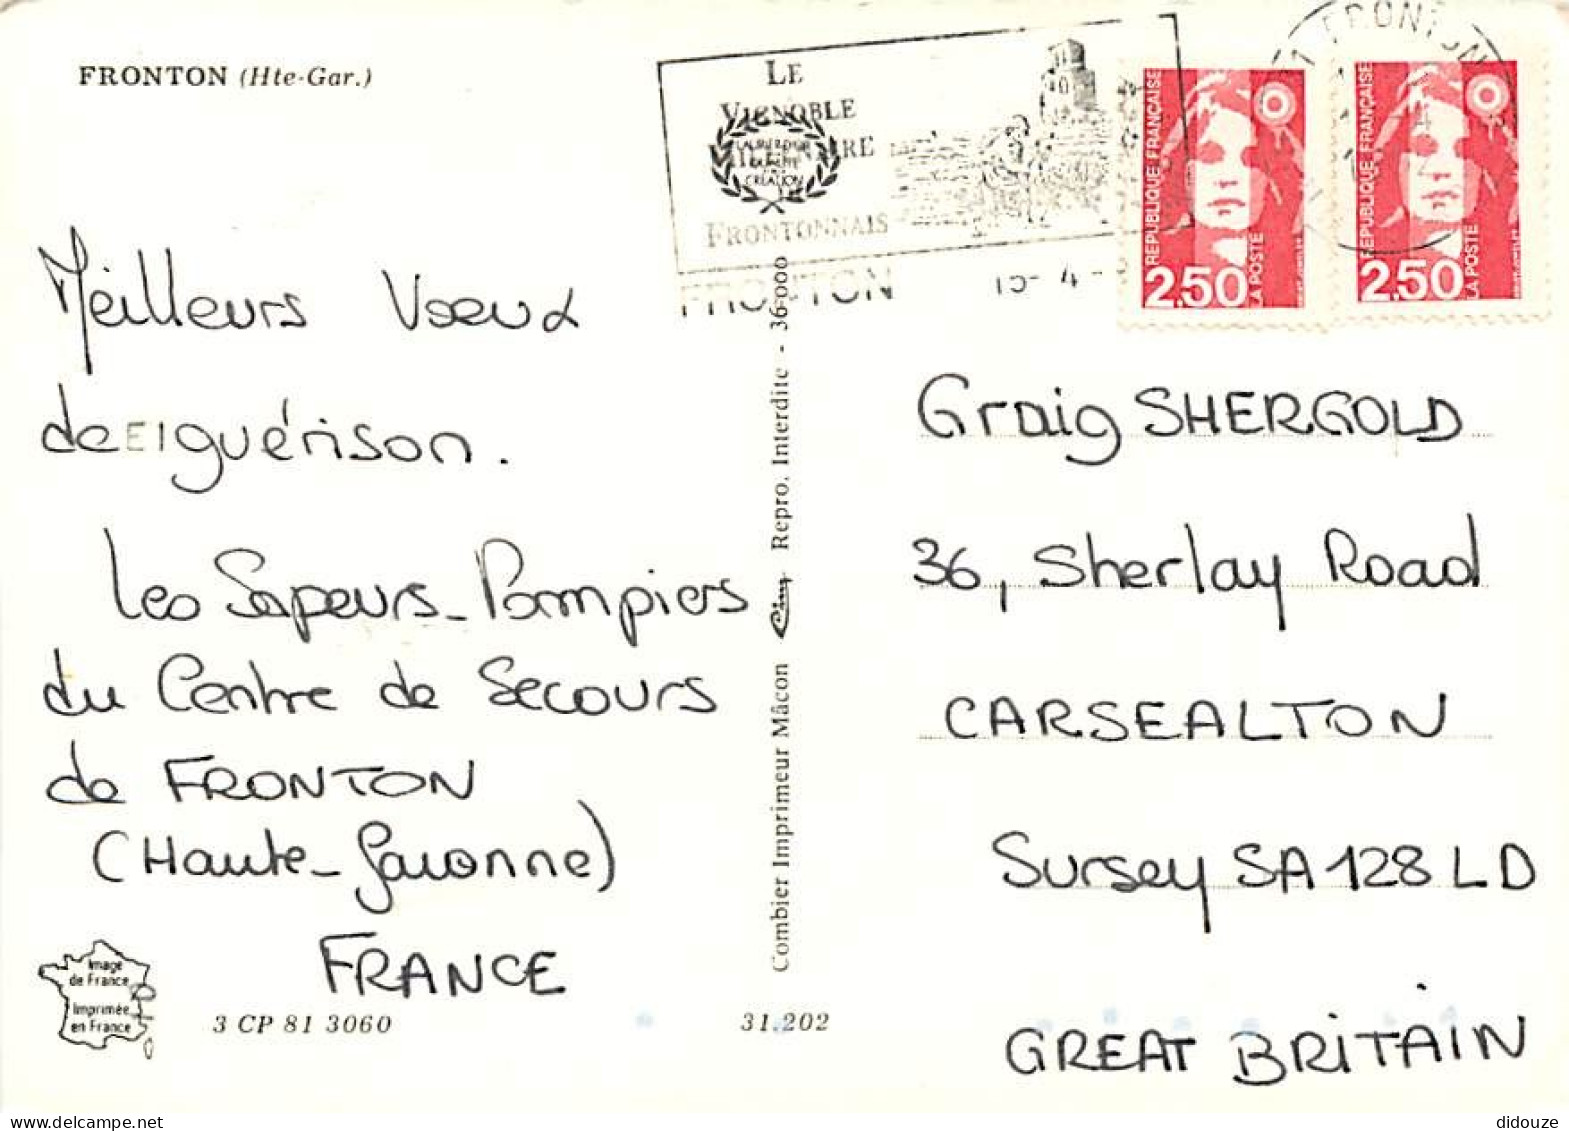 FRONTON (Hte-Gar.)
LE
VIGNOBLE
FRONTONNAIS
FRONTON
15-4-
FRONTON
REPUBLIQUE FRANÇAISE
2,50
LA POSTE
REPUBLIQUE FRANÇAISE
2,50
LA POSTE
CREATION
Meilleurs Voeux
de guérison.
Les Sapeurs-Pompiers
du Centre de Secours
de FRONTON
(Haute-Garonne)
FRANCE
Image
de France
Imprimée
en France
3 CP 81 3060
31.202
Combier Imprimeur Mâcon
Repro. Interdite - 36 000
Graig SHERGOLD
36, Sherlay Road
CARSEALTON
Sursey SA128LD
GREAT BRITAIN
didouze